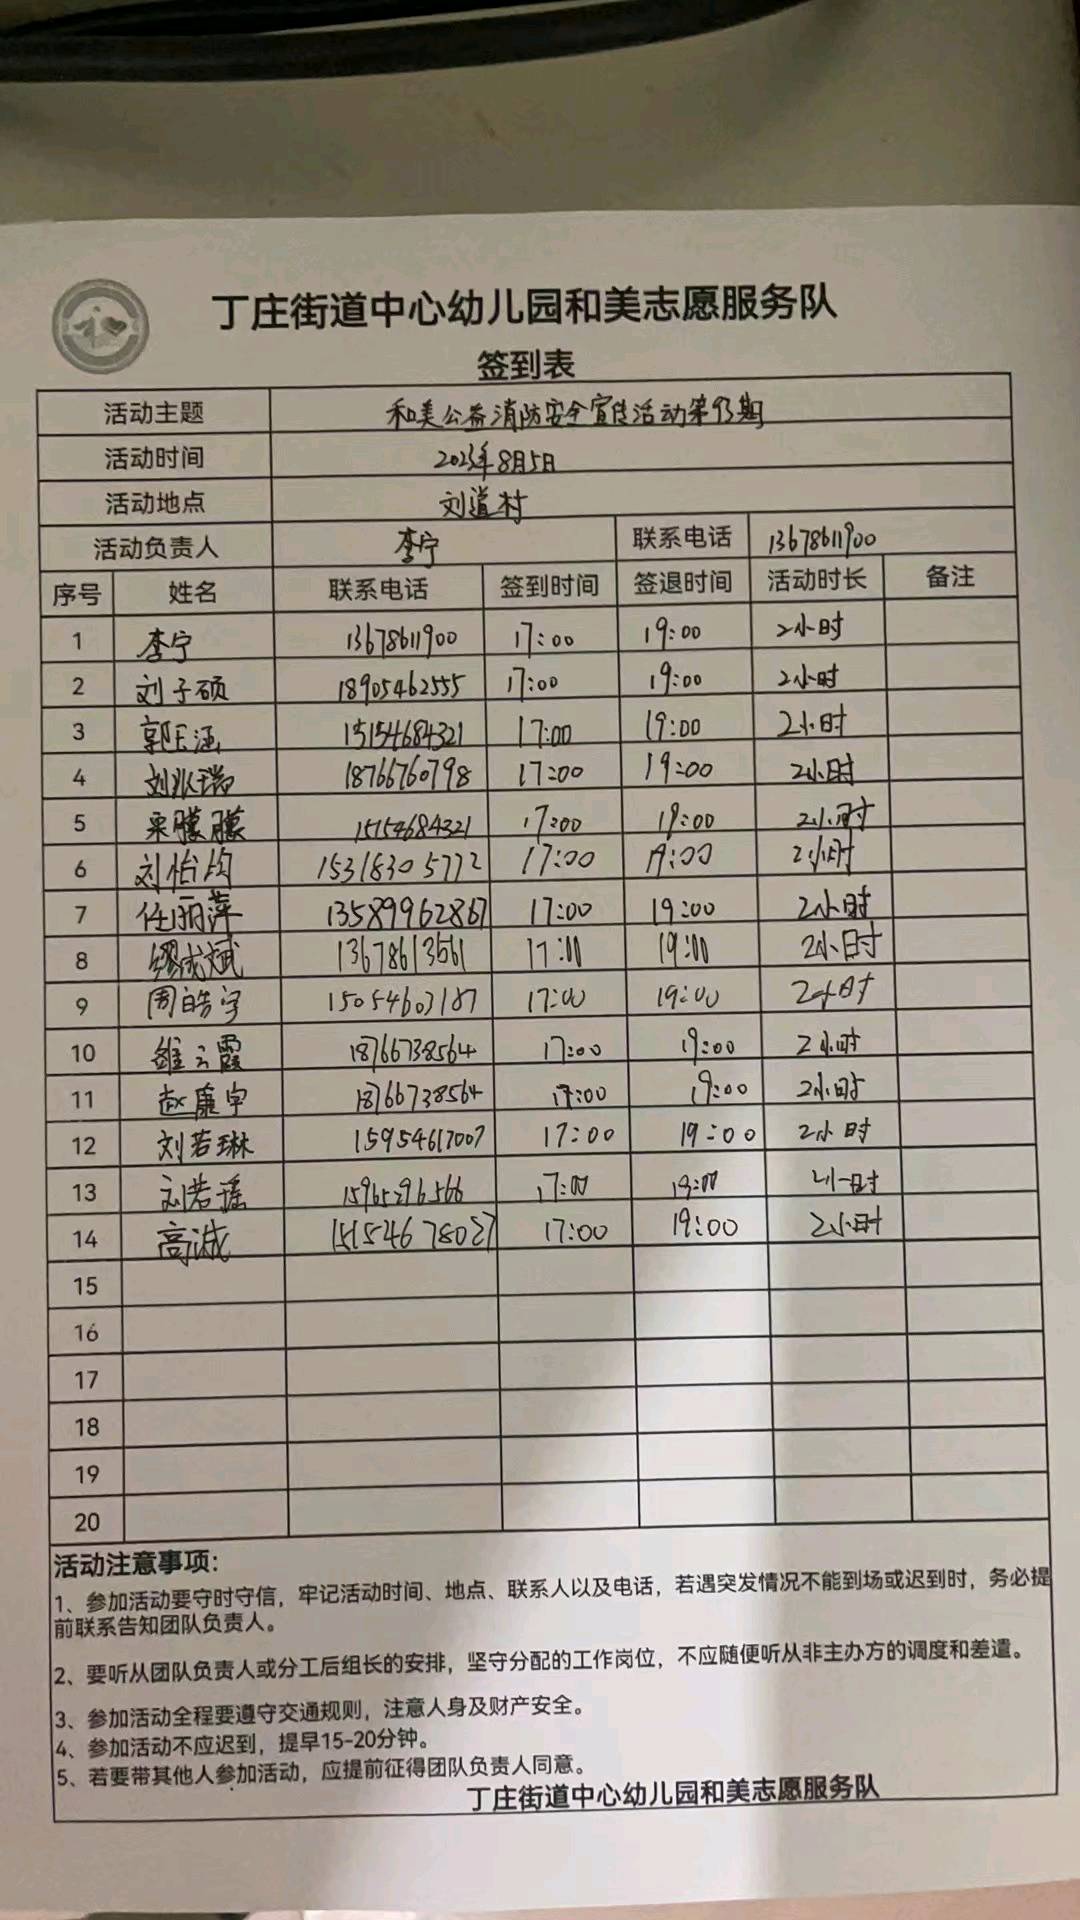 丁庄街道中心幼儿园和美志愿服务队
签到表
活动主题 和美公益消防安全宣传活动第93期
活动时间 2023年8月5日
活动地点 刘道村
活动负责人 李宁 联系电话 13678611900
序号 姓名 联系电话 签到时间 签退时间 活动时长 备注
1 李宁 13678611900 17:00 19:00 2小时
2 刘子硕 18905462555 17:00 19:00 2小时
3 郭玉涵 15154684321 17:00 19:00 2小时
4 18766760798 17:00 19:00 2小时
5 朦朦 15154684321 17:00 19:00 2小时
6 刘怡均 15318305772 17:00 19:00 2小时
7 任丽萍 13589962867 17:00 19:00 2小时
8 缪成斌 13678613561 17:00 19:00 2小时
9 周皓宇 15054603187 17:00 19:00 2小时
10 云霞 18766738564 17:00 19:00 2小时
11 赵康宇 18766738564 17:00 19:00 2小时
12 刘若琳 15954617007 17:00 19:00 2小时
13 刘若瑶 15965296566 17:00 19:00 2小时
14 高诚 15154678027 17:00 19:00 2小时
15
16
17
18
19
20
活动注意事项:
1、参加活动要守时守信，牢记活动时间、地点、联系人以及电话，若遇突发情况不能到场或迟到时，务必提
前联系告知团队负责人。
2、要听从团队负责人或分工后组长的安排，坚守分配的工作岗位，不应随便听从非主办方的调度和差遣。
3、参加活动全程要遵守交通规则，注意人身及财产安全。
4、参加活动不应迟到，提早15-20分钟。
5、若要带其他人参加活动，应提前征得团队负责人同意。
丁庄街道中心幼儿园和美志愿服务队